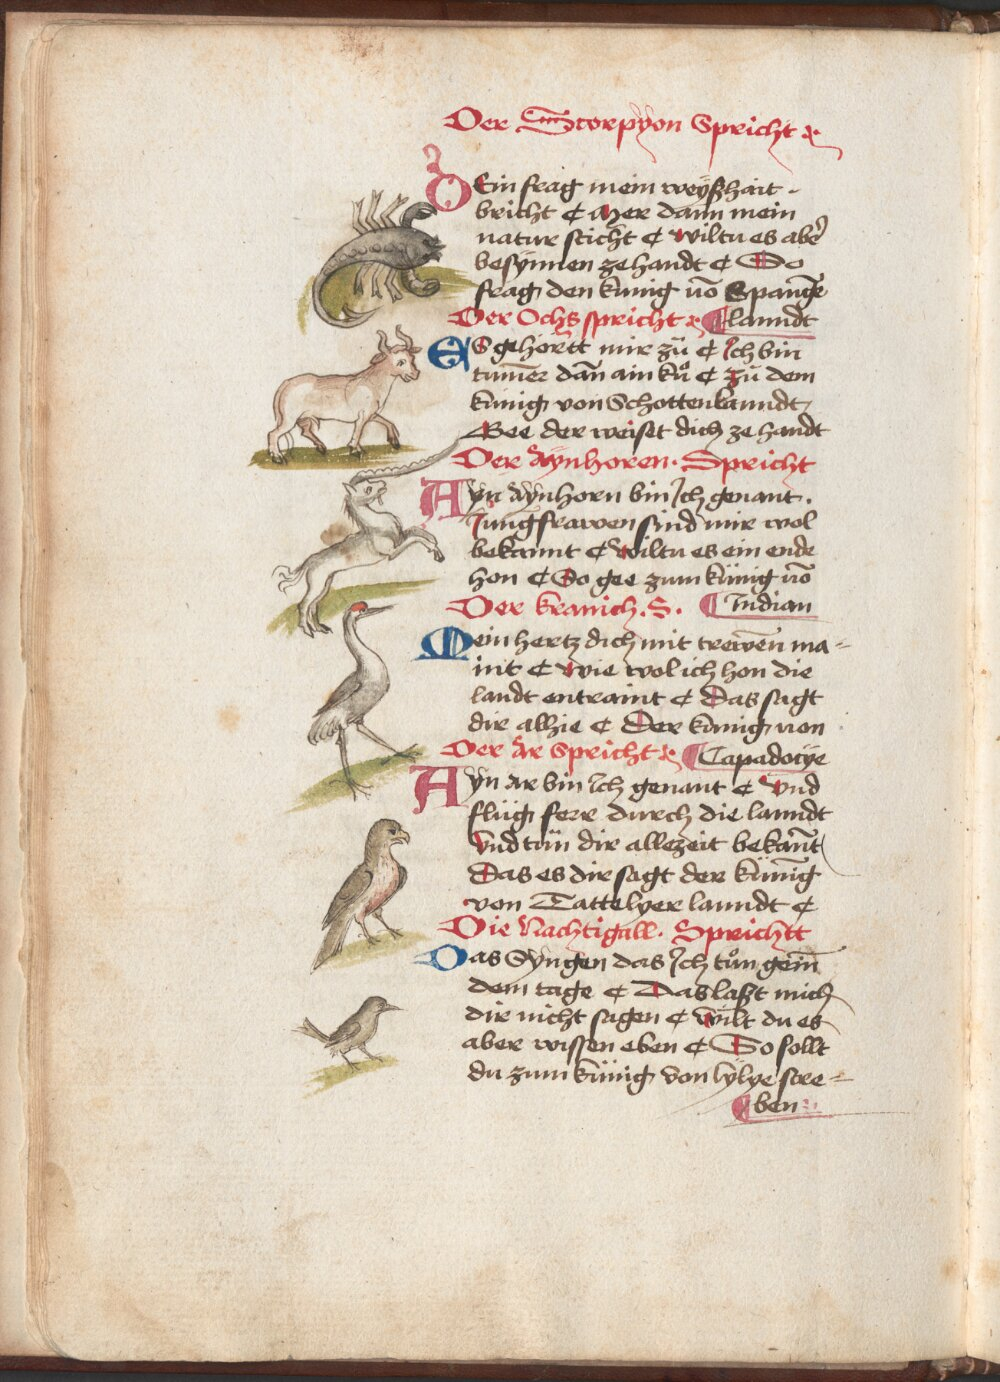 Der Scorpyon Spricht
Dein frag mein weyßhait
bricht ¢ Mer dann mein
natur sticht ¢ wiltu es aber
besynnen ze handt ¢ So
frag den kunig uō Spangē
Der Ochs spricht lanndt
ES gehörtt mir zů ¢ Ich bin
tum̄er dan̄ ain ků ¢ zů dem
kunig von Schottenlanndt
Gee der weiset dich ze handt
Der Aynhoren. Spricht
Ayn Aynhorn bin Ich genant.
Jungfrawen sind mir wol
bekannt ¢ wiltu es ein ende
hon ¢ So gee zum künig uō
Der kranich. S. Indian
Mein hertz dich mit trewen̄ ma=
init ¢ wie wol ich hon die
landt entraint ¢ Das sagt
dir alhie ¢ Der kunig von
Der Ar Spricht Capadocye
Ayn Ar bin Ich genant ¢ Vnd
flüg ferr durch die lanndt
Vnd tün dir allezeit bekan̄t
Das es dir sagt der kün̄ig
von Tattelyer lanndt ¢
Die Nachtigall. Sprichtt
Das Syngen das Ich tůn gein̄
dem tage ¢ Das laßt mich
dir nicht sagen ¢ wilt du es
aber wissen eben ¢ So sollt
du zum künig von lylye stre=
ben